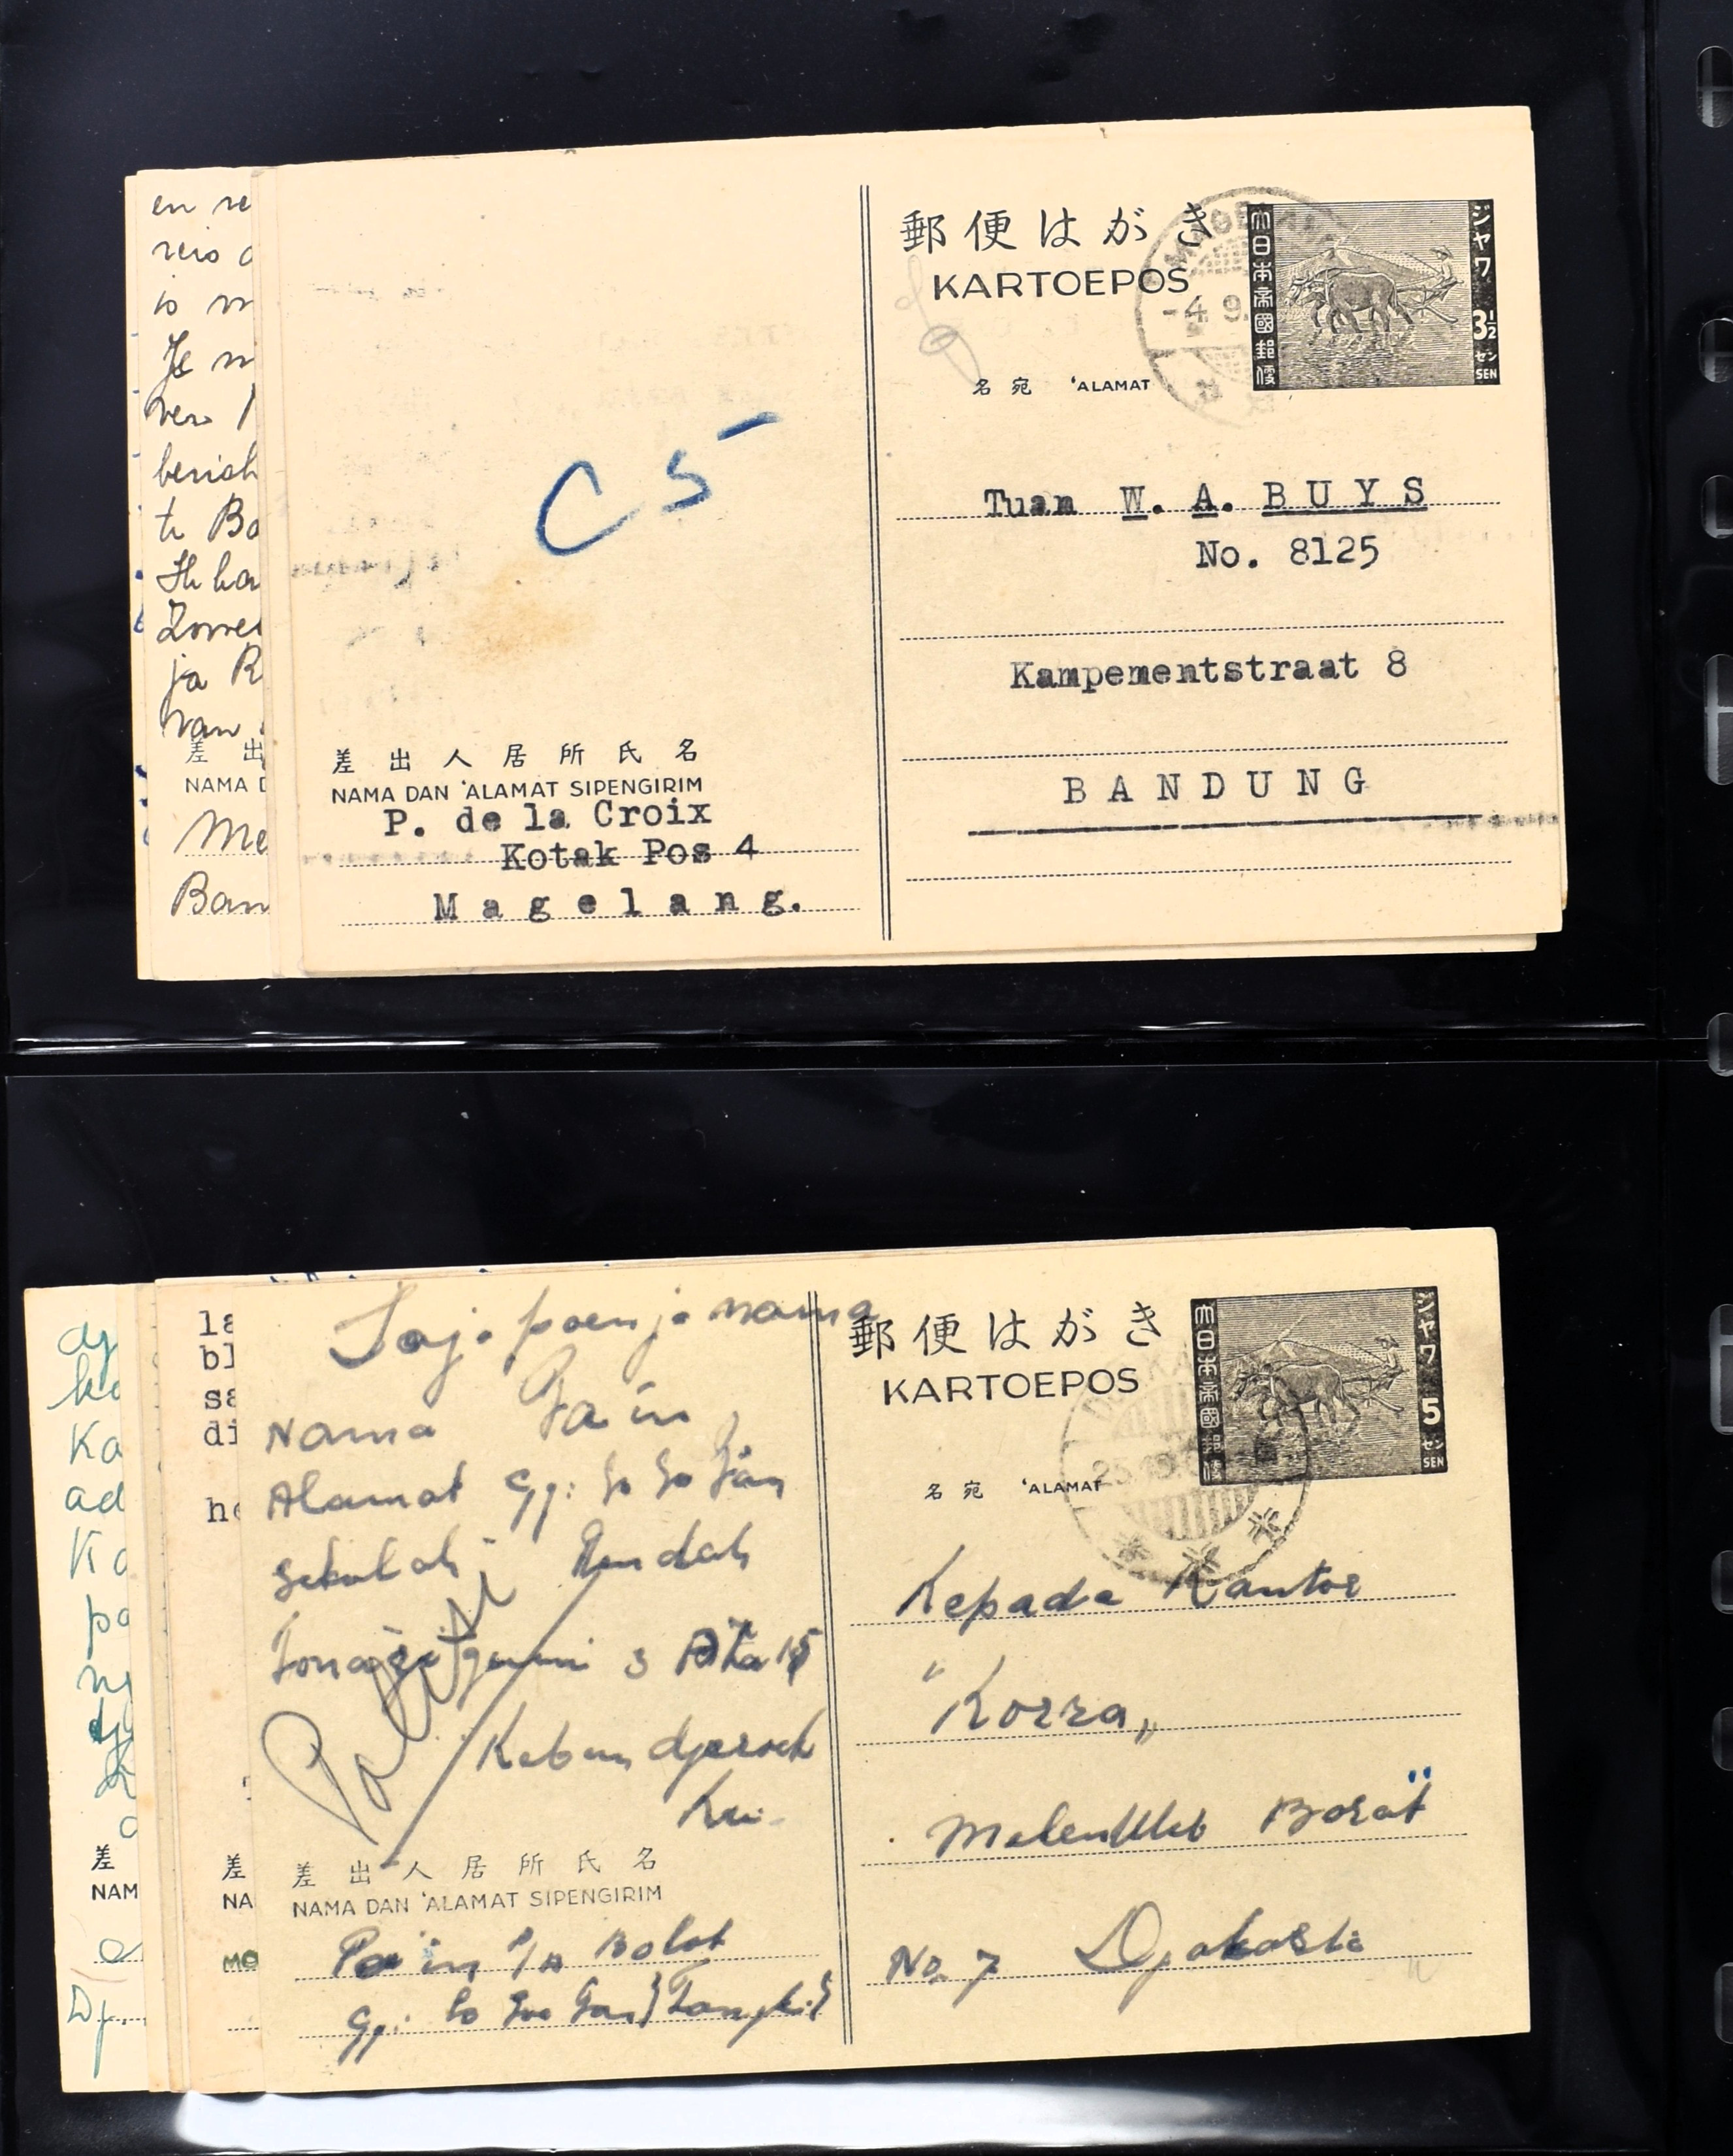 en re
reis
is
Je
berich
te Ba
Ik ha
ja R
van
差 出
NAMA D
Me
Ban
郵便はがき
KARTOEPOS
大日本帝國郵便
ジャワ
3½
セン
SEN
-4 9.
名宛 'ALAMAT
C 5
Tuan W. A. BUYS
No. 8125
Kampementstraat 8
BANDUNG
差出人居所氏名
NAMA DAN 'ALAMAT SIPENGIRIM
P. de la Croix
Kotak Pos 4
Magelang.
ka
Ka
ad
Ka
pa
差
NAM
Dj...
la
bl
sa
di
he
差
NA
MO
郵便はがき
KARTOEPOS
大日本帝國郵便
ジャワ
5
セン
SEN
名宛 'ALAMAT
Saja poenja nama
Nama Pa'in
Alamat Gg:
Sekolah Rendah
3
Kebon djeroek
Kepada Kantor
"Korra"
Barat
No. 7 Djakarta
差出人居所氏名
NAMA DAN 'ALAMAT SIPENGIRIM
Pa'in P/A Bolot
Gg: